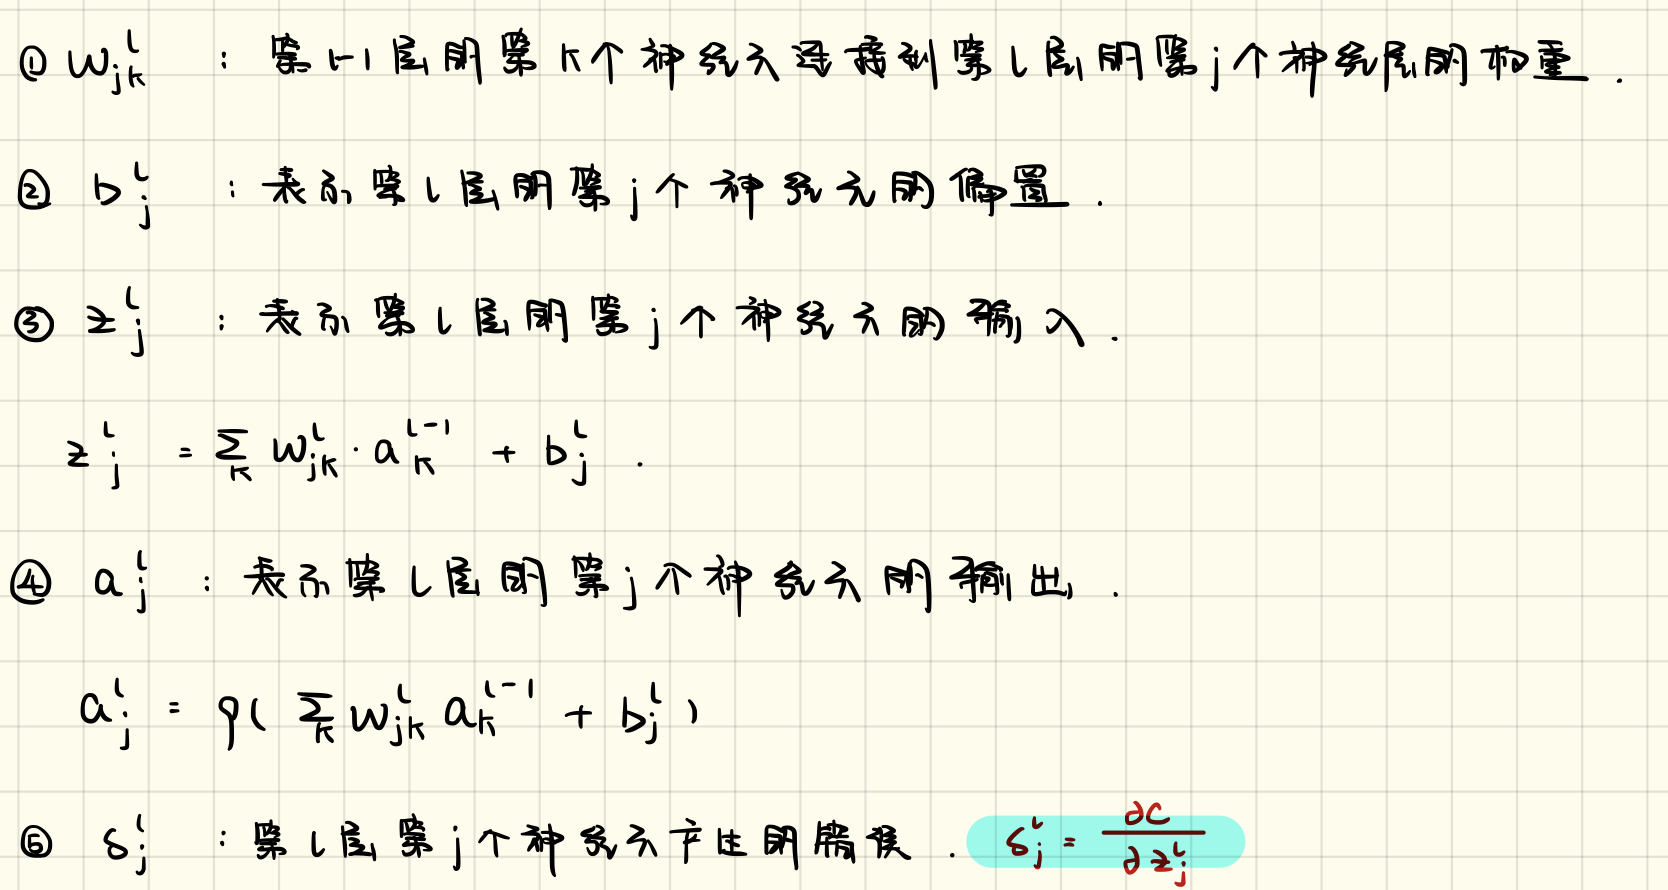 ① w_{jk}^{l} : 第 l-1 层的第 k 个神经元连接到第 l 层的第 j 个神经层的权重 .
② b_{j}^{l} : 表示第 l 层的第 j 个神经元的偏置 .
③ z_{j}^{l} : 表示第 l 层的第 j 个神经元的输入 .
z_{j}^{l} = Σ_{k} w_{jk}^{l} · a_{k}^{l-1} + b_{j}^{l} .
④ a_{j}^{l} : 表示第 l 层的第 j 个神经元的输出 .
a_{j}^{l} = φ( Σ_{k} w_{jk}^{l} a_{k}^{l-1} + b_{j}^{l} )
⑤ δ_{j}^{l} : 第 l 层第 j 个神经元产生的错误 . δ_{j}^{l} = ∂C / ∂z_{j}^{l}